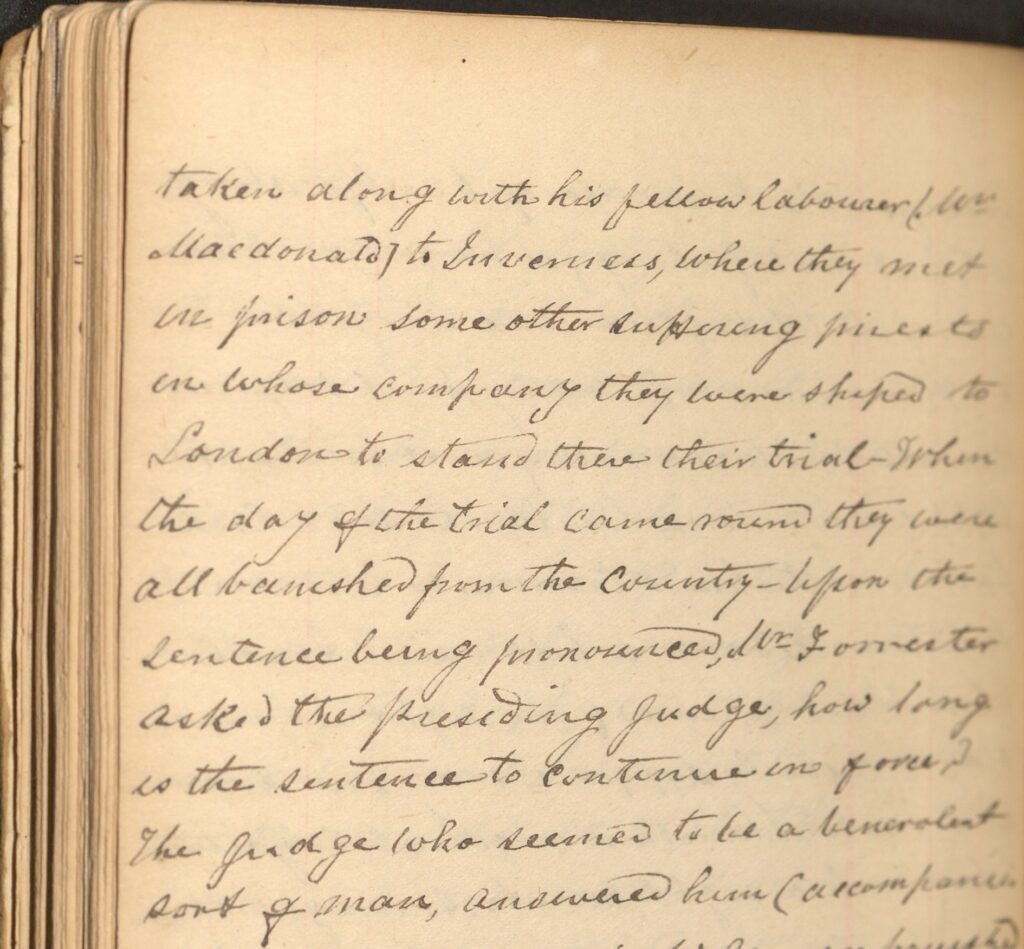 taken along with his fellow labourer (Mr
Macdonald) to Inverness, where they met
in prison some other suffering priests
in whose company they were shiped to
London to stand there their trial - When
the day of the trial came round they were
all banished from the Country - Upon the
sentence being pronounced, Mr Forrester
asked the presiding Judge, how long
is the sentence to continue in force?
The Judge who seemed to be a benevolent
sort of man, answered him (accompanied